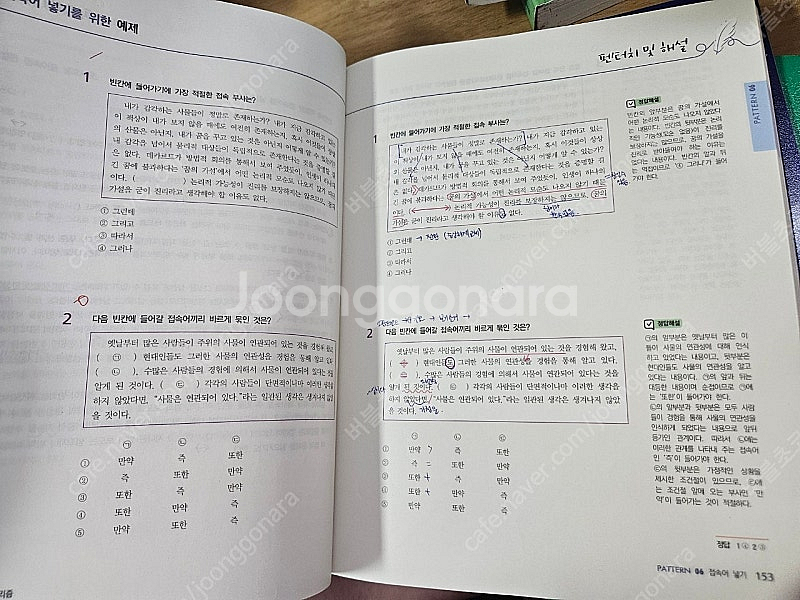 넣기를 위한 예제
1 빈칸에 들어가기에 가장 적절한 접속 부사는?
내가 감각하는 사물들이 정말로 존재하는가? 내가 지금 감각하고 있는
이 책상이 내가 보지 않을 때에도 여전히 존재하는지, 혹시 이것들이 상상
의 산물은 아닌지, 내가 꿈을 꾸고 있는 것은 아닌지 어떻게 알 수 있는가?
내 감각을 넘어서 물리적 대상들이 독립적으로 존재한다는 것을 증명할 길
은 없다. 데카르트가 방법적 회의를 통해서 보여 주었듯이, 인생이 하나의
긴 꿈에 불과하다는 '꿈의 가설'에서 어떤 논리적 모순도 나오지 않기 때문
이다. ( ) 논리적 가능성이 진리를 보장하지는 않으므로, 꿈의
가설을 굳이 진리라고 생각해야 할 이유도 없다.
① 그런데
② 그리고
③ 따라서
④ 그러나
2 다음 빈칸에 들어갈 접속어끼리 바르게 묶인 것은?
옛날부터 많은 사람들이 주위의 사물이 연관되어 있는 것을 경험해 왔고,
( ㉠ ) 현대인들도 그러한 사물의 연관성을 경험을 통해 알고 있다
( ㉡ ), 수많은 사람들의 경험에 의해서 사물이 연관되어 있다는 것을
알게 된 것이다. ( ㉢ ) 각각의 사람들이 단편적이나마 이러한 생각을
하지 않았다면, "사물은 연관되어 있다."라는 일관된 생각은 생겨나지 않았
을 것이다.
㉠ ㉡ ㉢
① 만약 즉 또한
② 즉 또한 만약
③ 또한 즉 만약
④ 또한 만약 즉
⑤ 만약 또한 즉
펜터치 및 해설
빈칸에 들어가기에 가장 적절한 접속 부사는?
내가 감각하는 사물들이 정말로 존재하는가? 내가 지금 감각하고 있는
이 책상이 내가 보지 않을 때에도 여전히 존재하는지, 혹시 이것들이 상상
의 산물은 아닌지, 내가 꿈을 꾸고 있는 것은 아닌지 어떻게 알 수 있는가?
내 감각을 넘어서 물리적 대상들이 독립적으로 존재한다는 것을 증명할 길
은 없다. 데카르트가 방법적 회의를 통해서 보여 주었듯이, 인생이 하나의
긴 꿈에 불과하다는 '꿈의 가설'에서 어떤 논리적 모순도 나오지 않기 때문
이다. ( ) 논리적 가능성이 진리를 보장하지는 않으므로, 꿈의
가설을 굳이 진리라고 생각해야 할 이유도 없다.
① 그런데 → 전환
② 그리고
③ 따라서
④ 그러나
정답해설
빈칸의 앞부분은 꿈의 가설에서
어떤 논리적 모순도 나오지 않는다
는 내용이다. 빈칸의 뒷부분은 논리
적인 가능성(모순 없음)이 진리를
보장하지는 않으므로, 꿈의 가설을
진리로 받아들여야 하는 이유는
없다는 내용이다. 빈칸의 앞과 뒤
는 역접이므로 '④ 그러나'가 들어
가야 한다.
PATTERN 06
2 다음 빈칸에 들어갈 접속어끼리 바르게 묶인 것은?
옛날부터 많은 사람들이 주위의 사물이 연관되어 있는 것을 경험해 왔고,
( ㉠ ) 현대인들도 그러한 사물의 연관성을 경험을 통해 알고 있다.
( ㉡ ), 수많은 사람들의 경험에 의해서 사물이 연관되어 있다는 것을
알게 된 것이다. ( ㉢ ) 각각의 사람들이 단편적이나마 이러한 생각을
하지 않았다면, "사물은 연관되어 있다."라는 일관된 생각은 생겨나지 않았
을 것이다.
㉠ ㉡ ㉢
① 만약 즉 또한
② 즉 또한 만약
③ 또한 즉 만약
④ 또한 만약 즉
⑤ 만약 또한 즉
정답해설
㉠의 앞부분은 옛날부터 많은 이
들이 사물의 연관성에 대해 인식
하고 있었다는 내용이고, 뒷부분은
현대인들도 사물의 연관성을 알고
있다는 내용이다. ㉠의 앞과 뒤는
대등한 내용이며 순접이므로 ㉠에
는 '또한'이 들어가야 한다.
㉡의 앞부분과 뒷부분은 모두 사람
들이 경험을 통해 사물의 연관성을
인식하게 되었다는 내용으로 앞뒤
등가인 관계이다. 따라서 ㉡에는
이러한 관계를 나타내 주는 접속어
인 '즉'이 들어가야 한다.
㉢의 뒷부분은 가정적인 상황을
제시한 조건절이 있으므로, ㉢에
는 조건절 앞에 오는 부사인 '만
약'이 들어가는 것이 적절하다.
정답 1④ 2③
PATTERN 06 접속어 넣기 153
Joonggonara
cafe.naver.com/joonggonara